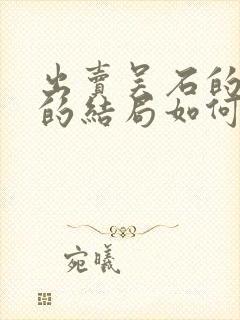 出賣吴石的
的結局如何
宛曦